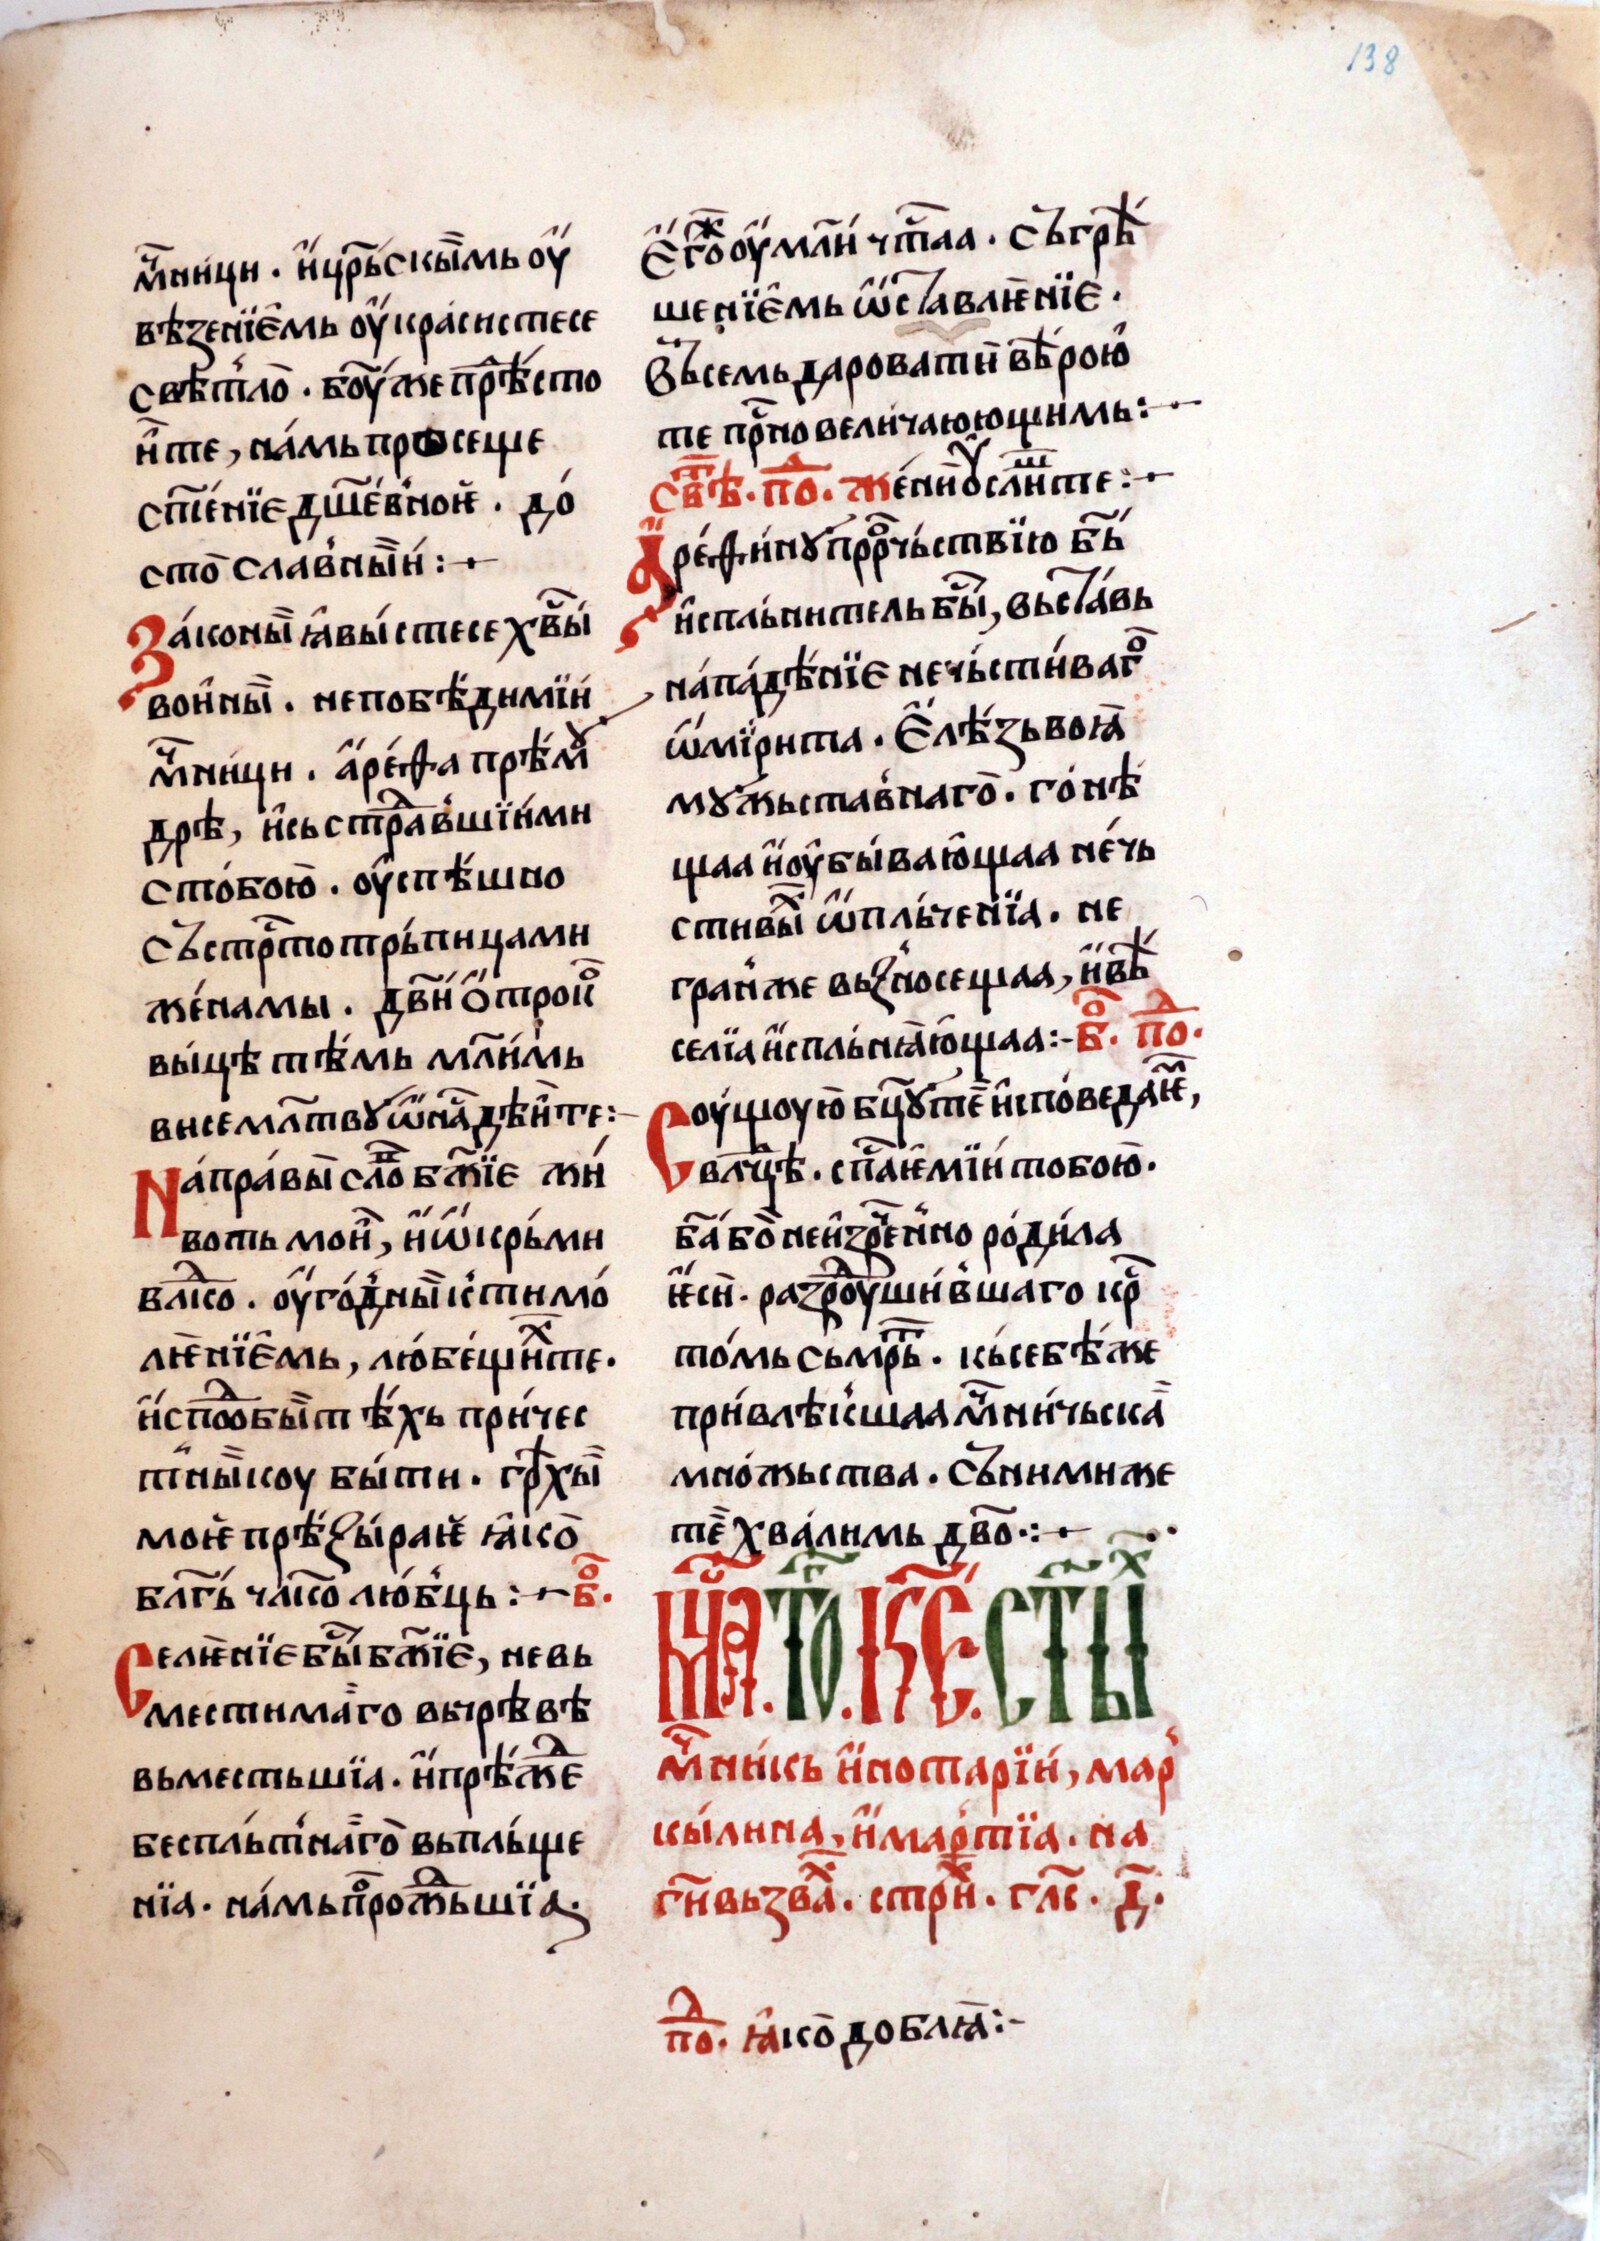 138
м҃ници . и҆цр҃ьскы́мь ѹ҆
вѣзенїє́мь ѹ҆красистесе
свѣтло̀ . бо҃ѹже прѣ́сто
и҆те , на́мь просеще
ст҃е́нїе дш҃е́вною . до́
сто̀славны́и :~
За́коны ꙗ҆вы́стесе хв҃ы́
вои́ны . непобѣ́димїи́
м҃ници . а҆ре́ѳа прѣ́мꙋ
дрѣ , и҆сьстрⷣа́вшїими
сто́бою . ѹ҆спѣ́шно
състрⷭ҇тотрьпицами
же́намы . дв҃и о҆́трокⷪ
вы́цѣ тѣ́мь мл҃и́мь
висемлт҃вꙋ ѿна́дѣи́те :~
На́пра́вы сло҃ бж҃їе жи́
воть мои̑ , и҆ѡ҆крьми
влⷣко . ѹ҆го́дны́к тимо́
лѥнїє́мь , лю́бещиⷯте .
и҆спⷣобы́ тѣ́хь при́чес
тны́коу бы́ти . грⷯѣхы́
мою̀ прѣзы́раѥ ꙗ҆ко̀
блг҃ь чл҃колю́бць :~ боⷢ .
Селѥ́нїе бы́ бж҃їе , невь
местима́го вьчрѣвѣ
вьместьшїа . и҆прѣ́жⷣе
бесплътна́го вьплъще
нїа . на́мьпрⷪ҇ожⷣьшїа .
Єго́ⷤ ѹ҆мли́ чт҃аа . съгрѣ́
шенїє́мь ѡ҆ставлѥ́нїе .
Въсемь даровати̑ вѣ́рою̑
те прⷭ҇но величаюющимь :~
свⷮѣ . поⷣ . же́ни ѹ҆слиⷲте :~
А҆ре́ѳи́нꙋ прⷪ҇рчьствїю бы́
и҆спльнитель бы́ , вьста́вь
на́па́дѣнїе нечьсти́вагⷪ
ѿмїрита . Є҆лѣ́зьвоꙗ̀
мꙋжьставнаго̀ . го́нѣ
щаа и҆ѹ҆бы́ваю̑щаа не́чь
стивыⷯ ѡ҆пльче́нїа . не
граи́же вьзносещаа , и҆вѣ́
селїа и҆спльнꙗю̑щаа :~ боⷢ . поⷣ .
Сѹ́щѹю̀ бц҃ꙋ те̑ и҆спо́ведаѥ ,
влⷣцѣ . спⷭ҇аѥ́мїи тобою̀ .
ба҃ бо̀неи҆зрⷱ҇е́нно роди́ла
ѥ҆си̑ . разⷣроуши́вшаго крⷭ҇
то́мь съмрⷮь . кьсебѣ́же
при́влѣ́кшаа м҃чни́чьска̀
мно́жьства . Съними же
те̑ хва́лимь дв҃о . :~
Мⷭ҇ца . То . КЕ . СТЫ́Х
м҃чни́кь и҆нотарїи́ , мар
кы́лина , и҆мартїа . на
ги҃ вьзваⷯ . стриⷯ . глⷭ҇ . д҃ .
поⷣ . ꙗ҆ко̀ доблꙗ̀ :~